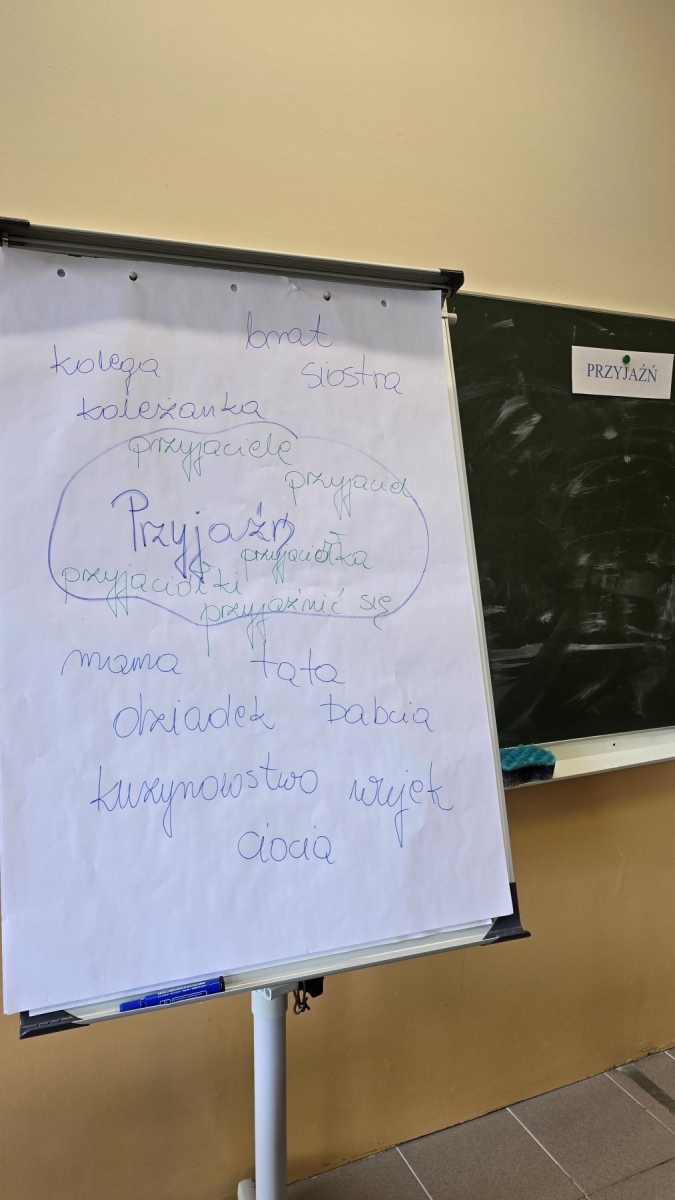 brat
kolega siostra
koleżanka
przyjaciele
przyjaciel
Przyjaźń
przyjaciółka
przyjaciółki
przyjaźnić się
mama tata
dziadek babcia
kuzynowstwo wujek
ciocia
PRZYJAŹŃ